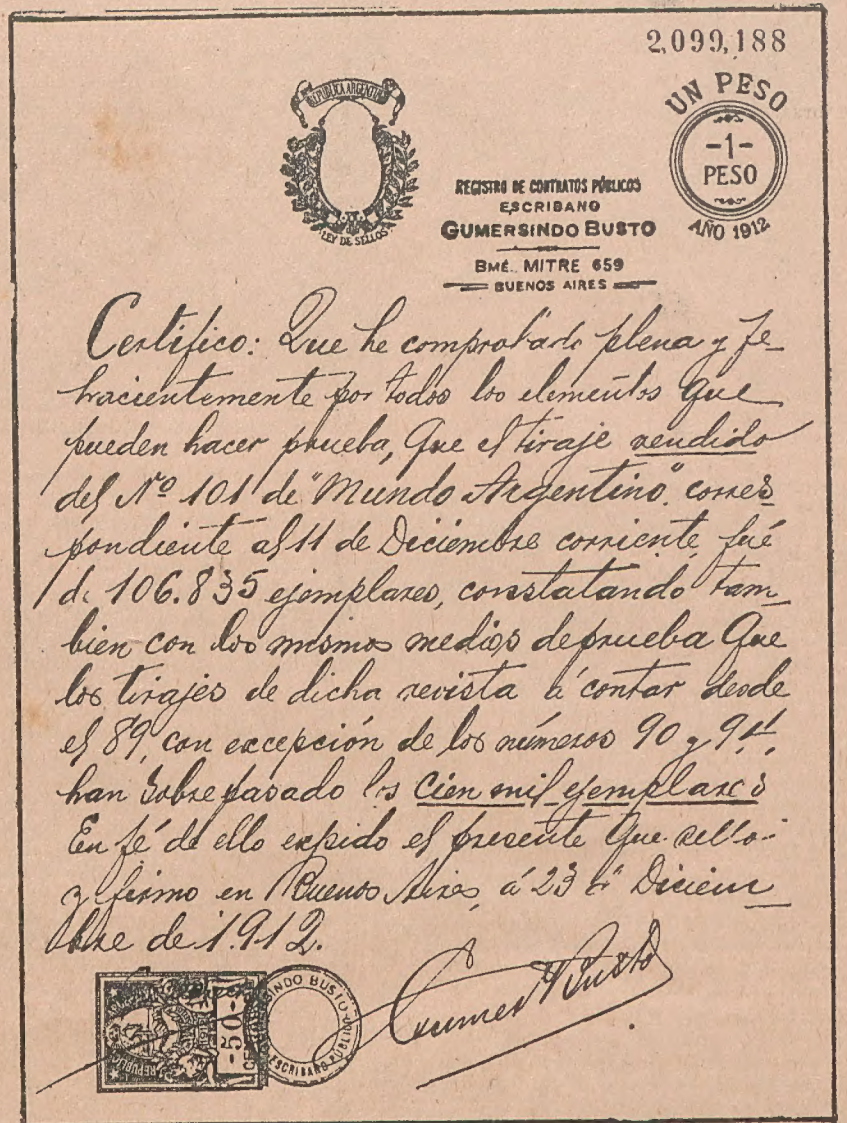 2,099,188
REPUBLICA ARGENTINA
LEY DE SELLOS
UN PESO
-1-
PESO
AÑO 1912
REGISTRO DE CONTRATOS PÚBLICOS
ESCRIBANO
GUMERSINDO BUSTO
BMÉ. MITRE 659
BUENOS AIRES
Certifico: Que he comprobado plena y fe-
hacientemente por todos los elementos que
pueden hacer prueba, que el tiraje vendido
del Nº 101 de "Mundo Argentino", corres-
pondiente al 11 de Diciembre corriente, fué
de 106.835 ejemplares, constatando tam-
bien con los mismos medios de prueba que
los tirajes de dicha revista á contar desde
el 89, con excepción de los números 90 y 94,
han sobrepasado los cien mil ejemplares
En fé de ello expido el presente que sello
y firmo en Buenos Aires, á 23 de Diciem-
bre de 1912.
Gumer Busto
-50-
GUMERSINDO BUSTO
ESCRIBANO PÚBLICO